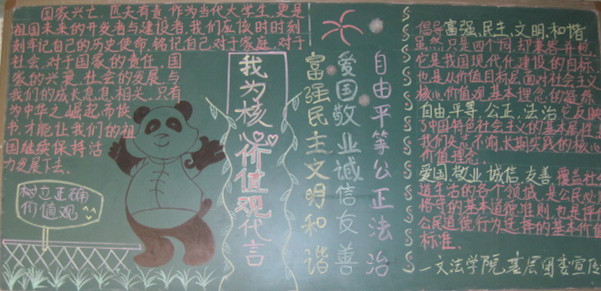 国家兴亡,匹夫有责,作为当代大学生,更是
祖国未来的开发者与建设者,我们应该时时刻
刻牢记自己的历史使命,铭记自己对于家庭、对于
社会、对于国家的责任。国
家的兴衰,社会的发展与
我们的成长息息相关。只有
为中华之崛起而读
书,才能让我们的祖
国继续保持活
力发展下去。
树立正确
价值观
我为核心价值观代言
富强民主文明和谐
爱国敬业诚信友善
自由平等公正法治
倡导富强、民主、文明、和谐,
虽然只是四个词,却兼容并包,
它是我国现代化建设的目标,
也是从价值目标层面对社会主义
核心价值观基本理念的凝练
自由、平等、公正、法治,它反映
了中国特色社会主义的基本属性,是
我们矢志不渝,长期实践的核心
价值理念。
爱国、敬业、诚信、友善,覆盖社会
道德生活的各个领域,是公民必须
恪守的基本道德准则,也是评价
公民道德行为选择的基本价值
标准。
—文法学院基层团委宣传